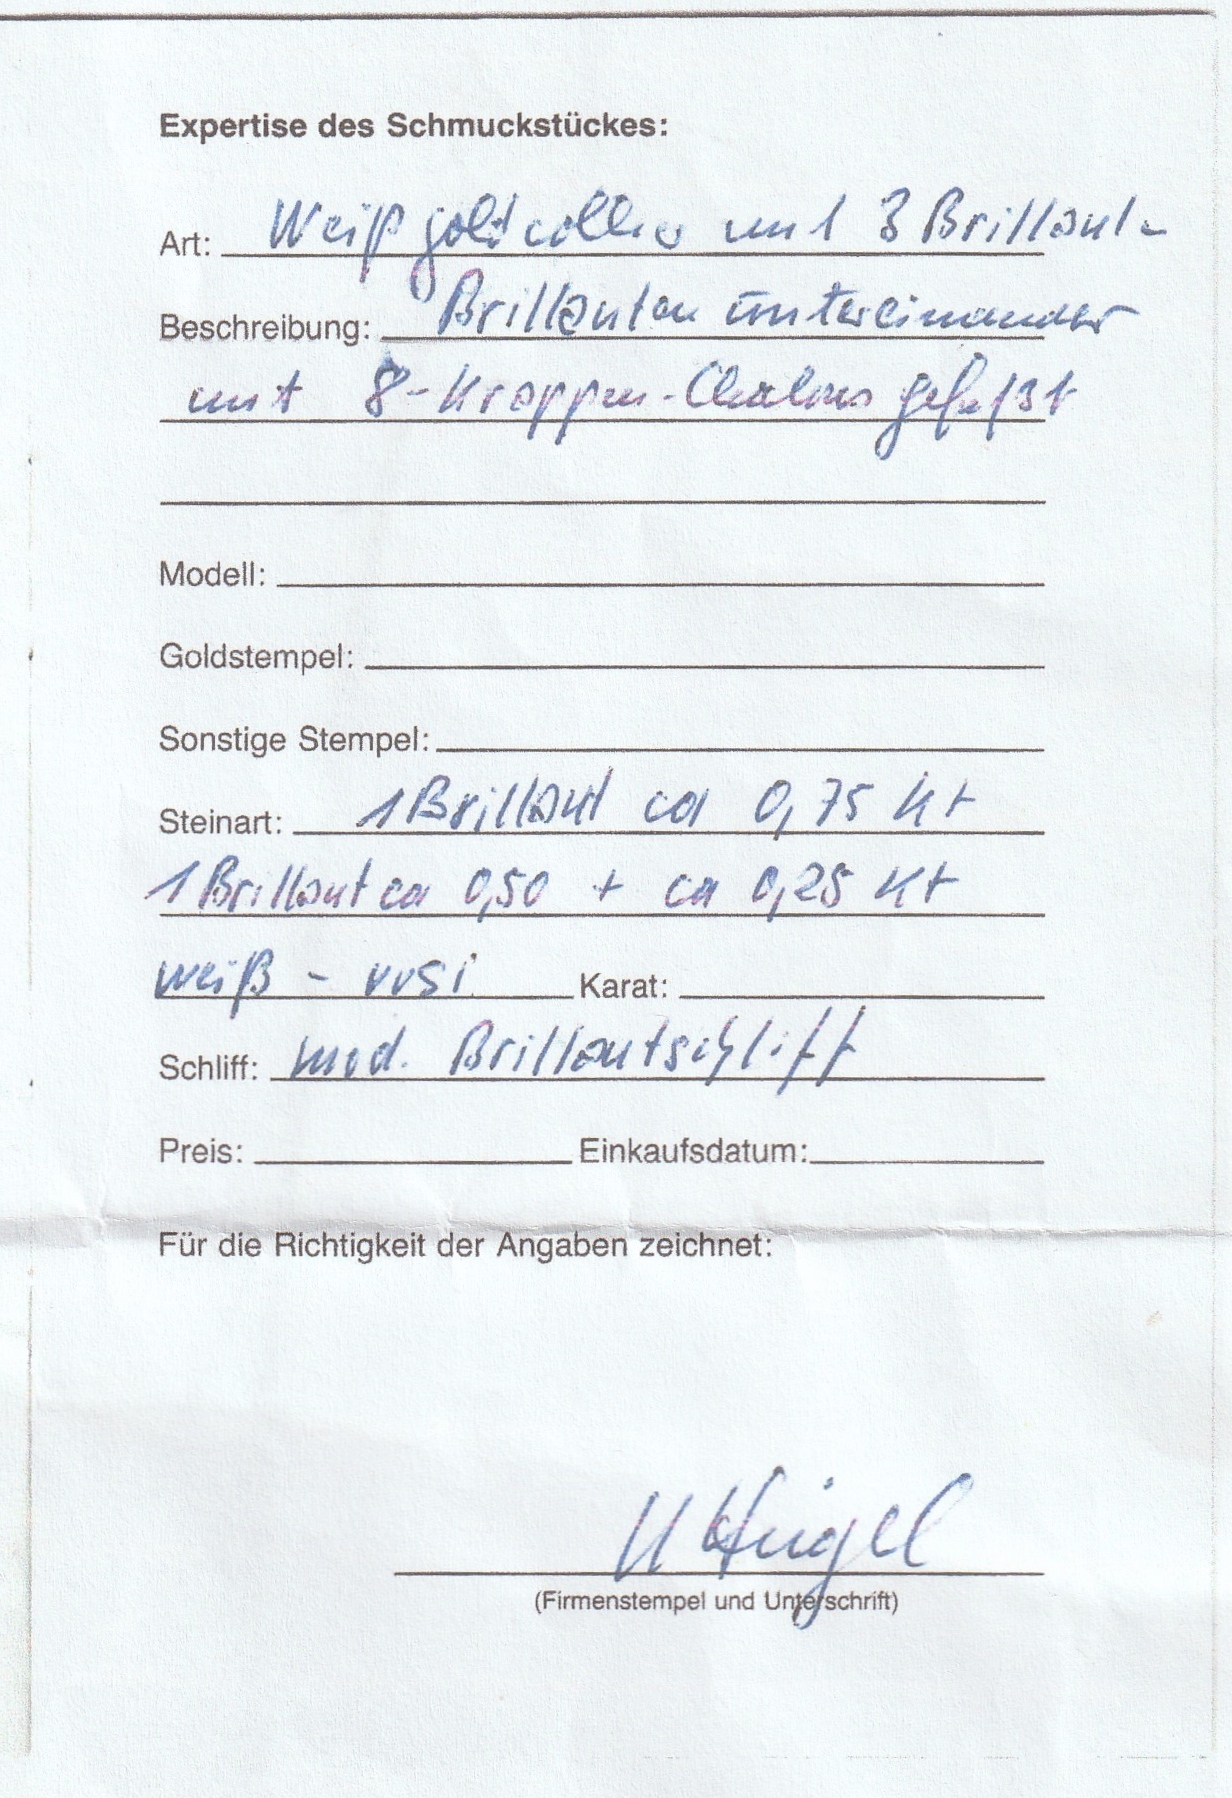 Expertise des Schmuckstückes:
Art: Weißgoldcollier mit 3 Brillant-
Beschreibung: Brillanten untereinander
mit 8-Krappen-Chatons gefaßt
Modell:
Goldstempel:
Sonstige Stempel:
Steinart: 1 Brillant ca 0,75 Kt
1 Brillant ca 0,50 + ca 0,25 Kt
weiß - vvsi Karat:
Schliff: mod. Brillantschliff
Preis: Einkaufsdatum:
Für die Richtigkeit der Angaben zeichnet:
(Firmenstempel und Unterschrift)